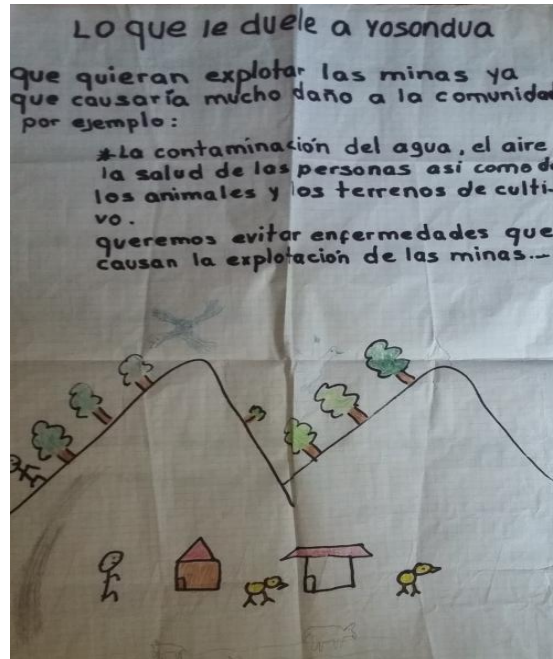 Lo que le duele a Yosondua
que quieran explotar las minas ya
que causaría mucho daño a la comunidad
por ejemplo:
*La contaminación del agua, el aire
la salud de las personas asi como de
los animales y los terrenos de culti-
vo.
queremos evitar enfermedades que
causan la explotación de las minas...